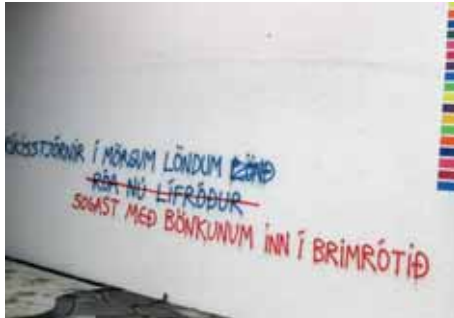 RÍKISSTJÓRNIR Í MÖRGUM LÖNDUM
RÓA NÚ LÍFRÓÐUR
SOGAST MEÐ BÖNKUNUM INN Í BRIMRÓTIÐ